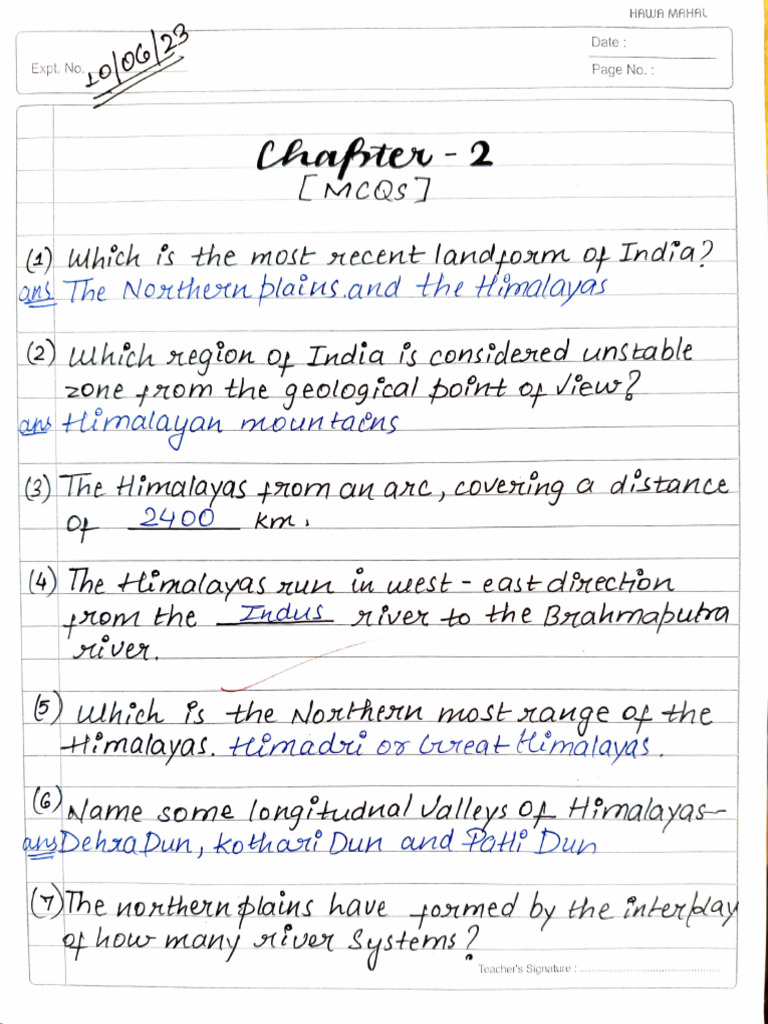 HAWA MAHAL
Date :
Expt. No. 10/06/23
Page No. :
Chapter - 2
[MCQS]
(1) Which is the most recent landform of India?
ans The Northern plains.and the Himalayas
(2) Which region of India is considered unstable
zone from the geological point of view?
ans Himalayan mountains
(3) The Himalayas from an arc, covering a distance
of 2400 km.
(4) The Himalayas run in west - east direction
from the Indus river to the Brahmaputra
river.
(5) Which is the Northern most range of the
Himalayas. Himadri or Great Himalayas.
(6) Name some longitudnal Valleys of Himalayas-
ans Dehra Dun, Kothari Dun and Patli Dun
(7) The northern plains have formed by the interplay
of how many river systems?
Teacher's Signature :